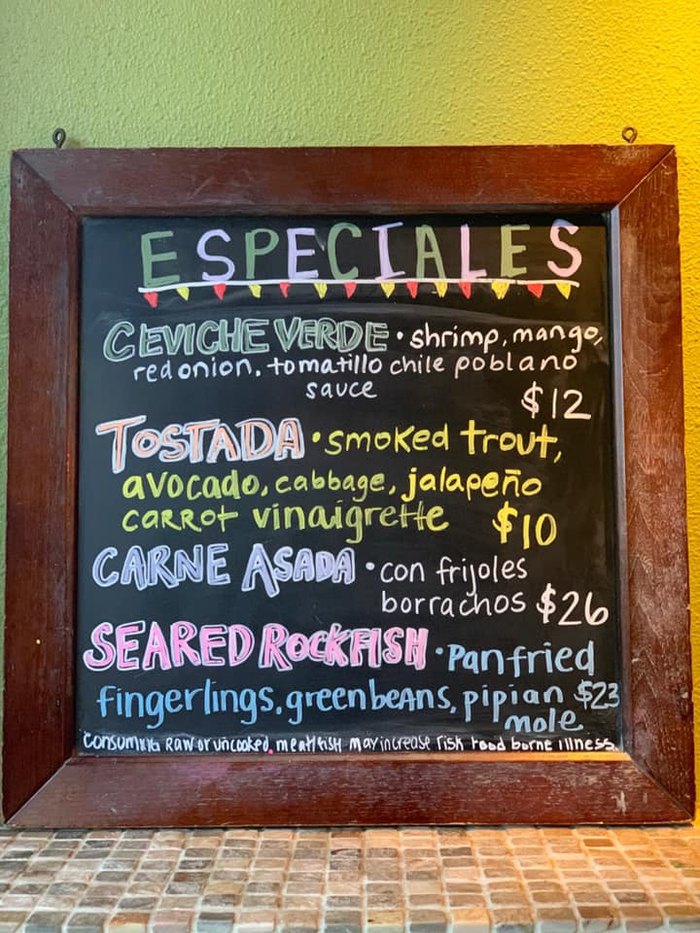 ESPECIALES
CEVICHE VERDE • shrimp, mango,
red onion, tomatillo chile poblano
sauce
$12
TOSTADA • smoked trout,
avocado, cabbage, jalapeño
carrot vinaigrette $10
CARNE ASADA • con frijoles
borrachos $26
SEARED ROCKFISH • Pan fried
fingerlings, green beans, pipian $23
mole
Consuming Raw or uncooked meat/fish may increase risk food borne illness.